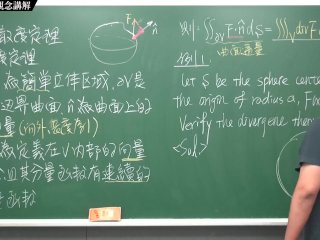 觀念講解
散度定理
度定理
為簡單立体区域, ∂V是
边界曲面 n̂ 為曲面上的
量(向外, 長度為1)
為定義在V內部的向量
且其分量函數有連續的
函數
F n̂
則 ∬∂V F·n̂ dS = ∭V div F
曲面通量
例1
Let S be the sphere cente
the origin of radius a, F(x
Verify the divergence theor
<Sol>